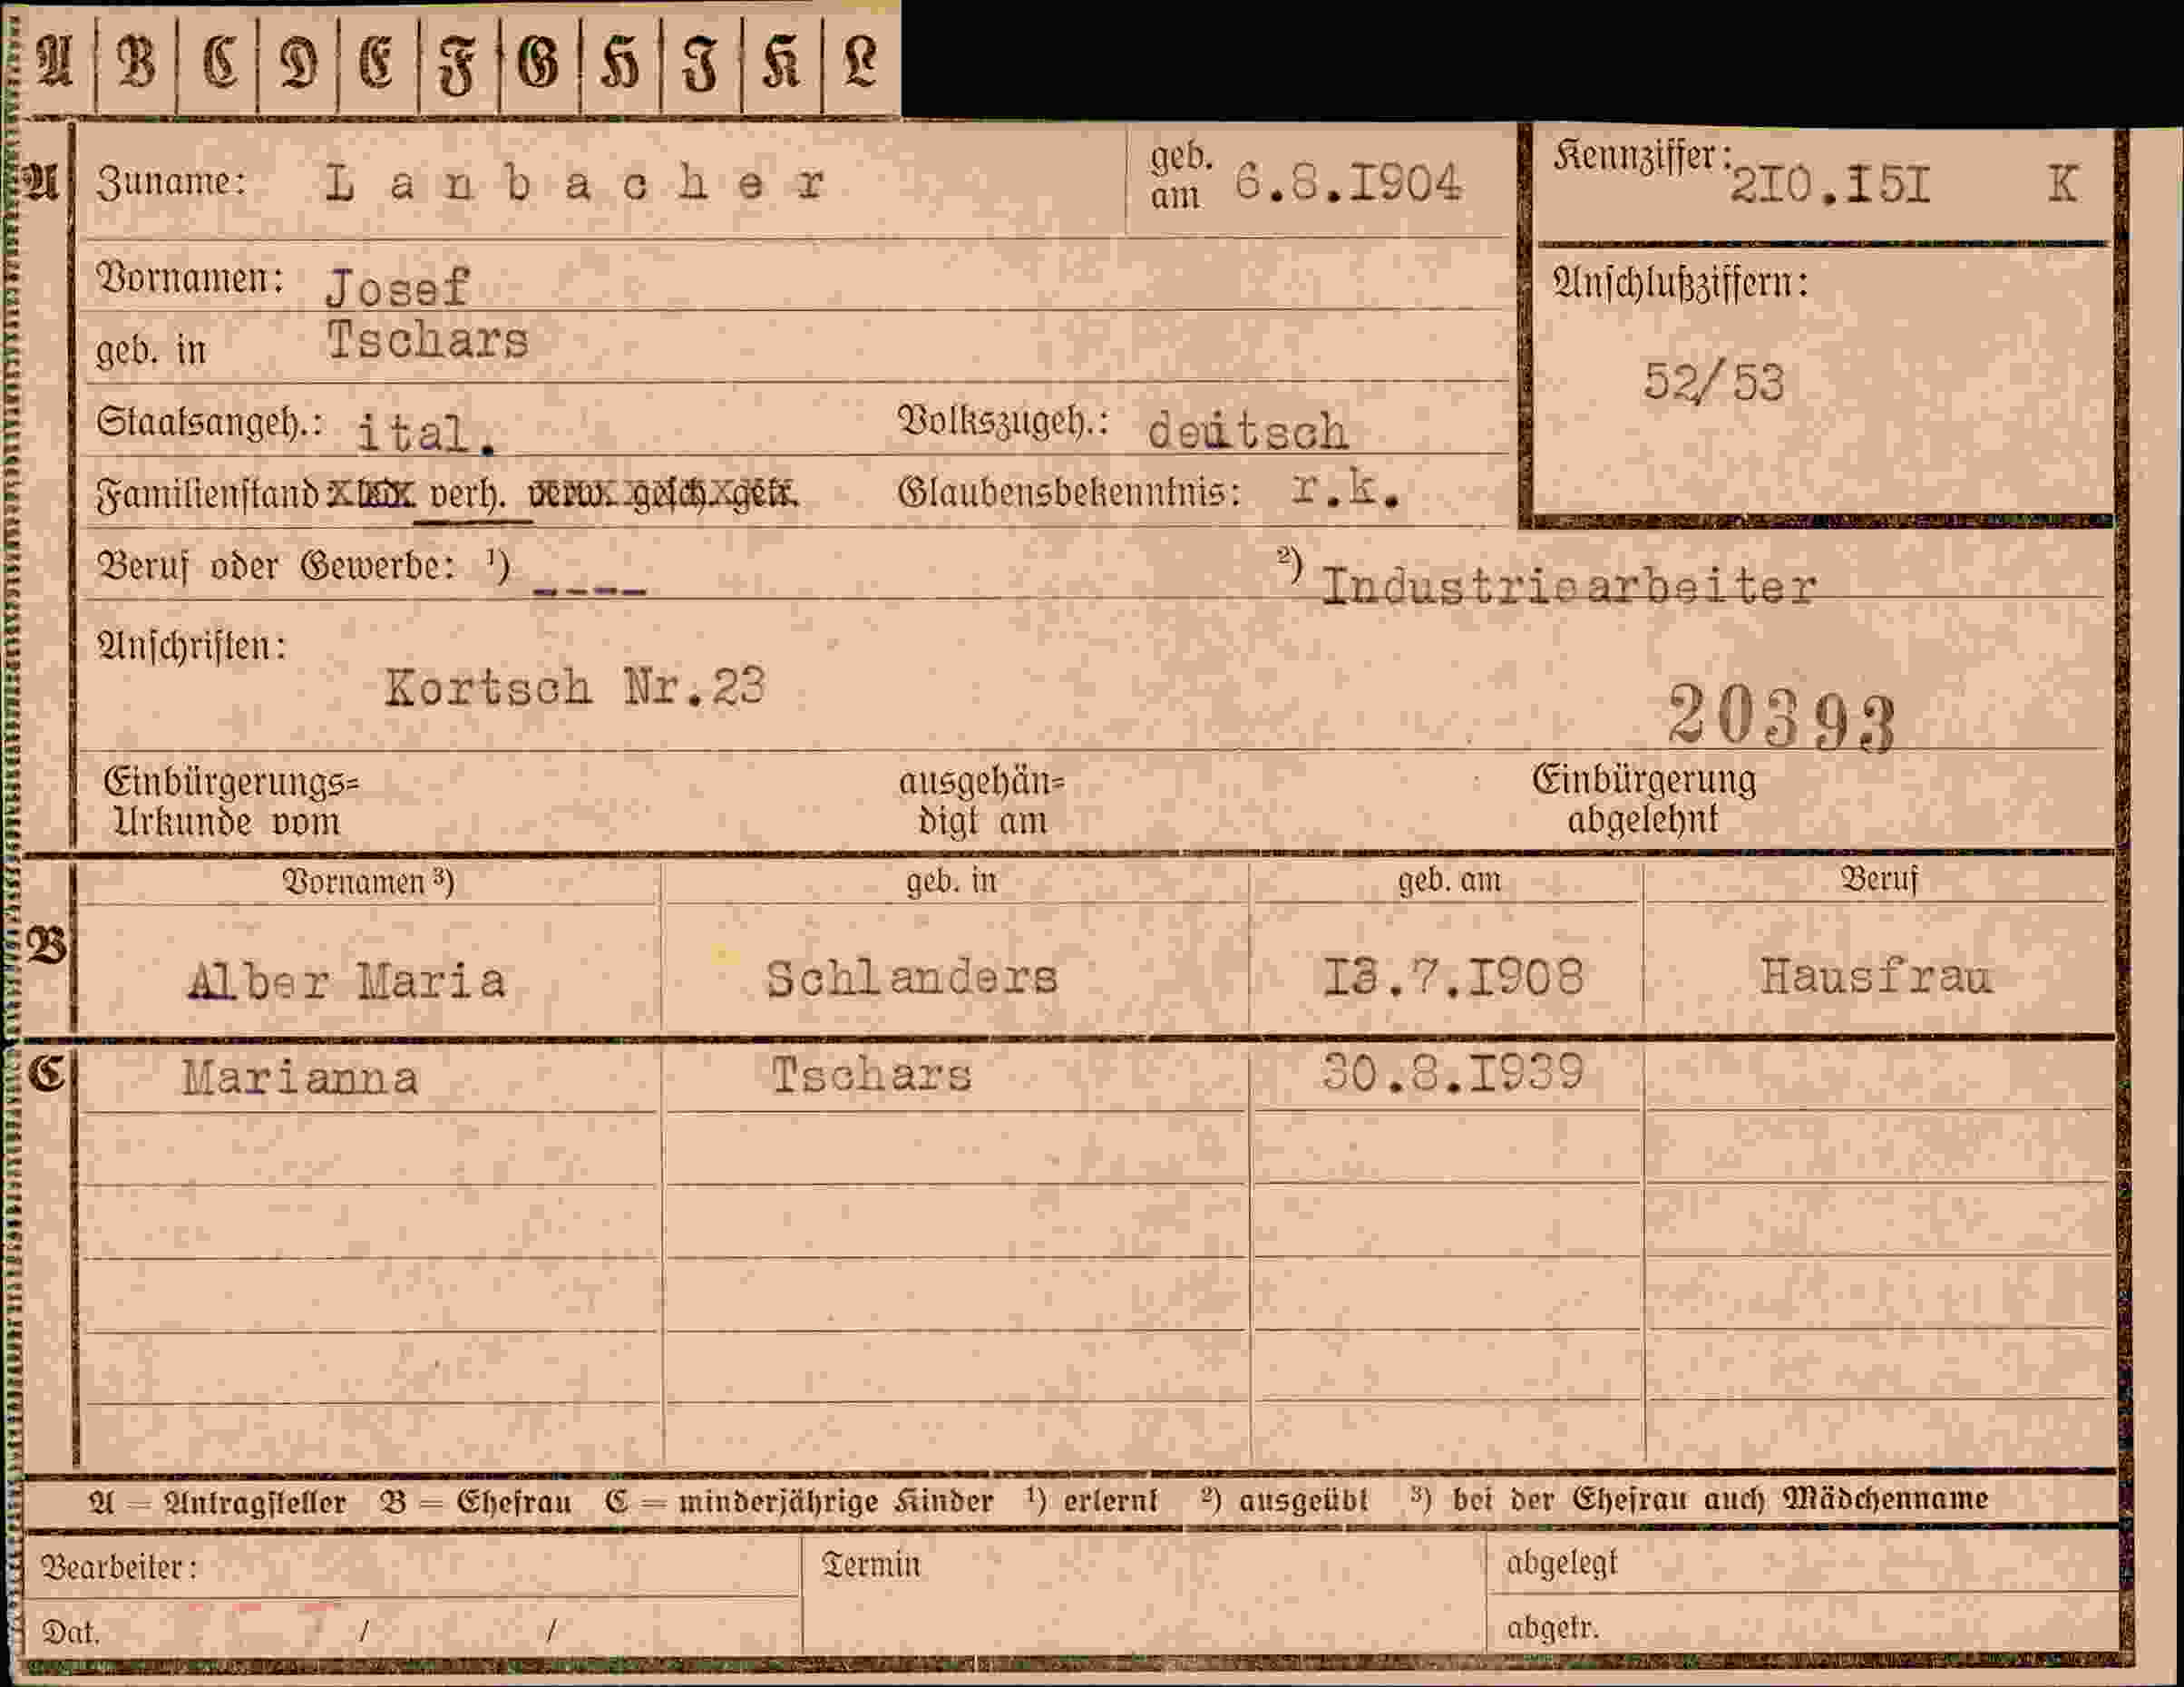 A | B | C | D | E | F | G | H | I | K | L
A Zuname: Lanbacher geb. am 6.8.I904 Kennziffer: 2I0.I5I K
Vornamen: Josef
Anschlußziffern:
geb. in Tschars
52/53
Staatsangeh.: ital. Volkszugeh.: deutsch
Familienstand verh. verw. gesch. getr. Glaubensbekenntnis: r.k.
Beruf oder Gewerbe: ¹) ---- ²) Industriearbeiter
Anschriften:
Kortsch Nr.23
20393
Einbürgerungs= ausgehän= Einbürgerung
Urkunde vom digt am abgelehnt
Vornamen ³) geb. in geb. am Beruf
B Alber Maria Schlanders I3.7.I908 Hausfrau
C Marianna Tschars 30.8.I939
A = Antragsteller B = Ehefrau C = minderjährige Kinder ¹) erlernt ²) ausgeübt ³) bei der Ehefrau auch Mädchenname
Bearbeiter: Termin abgelegt
Dat. / / abgetr.